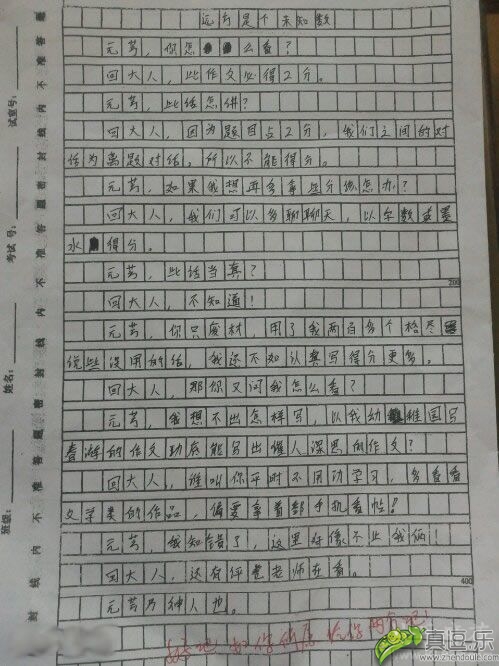 远方是个未知数
元芳,你怎么看?
回大人,此作文必得2分。
元芳,此话怎讲?
回大人,因为题目占2分,我们之间的对
话为离题对话。所以不能得分。
元芳,如果我想再多拿些分你怎办?
回大人,我们可以多聊聊天,以字数或墨
水得分。
元芳,此话当真?
200
回大人,不知道!
元芳,你只废材,用了我两百多个格尽
说些没用的话,我还不如认真写得分更多。
回大人,那你又问我怎么看?
元芳,我想不出怎样写,以我幼稚园写
的作文功底能写出催人深思的作文?
回大人,谁叫你平时不用功学习,多看看
文学类的作品,偏要拿着部手机看帖!
元芳,我知错了,这里好像不止我俩!
回大人,还有评卷老师在看。
400
元芳乃神人也。
给你两分吧!
班级:
姓名:
考试号:
试室号:
密封线内不准答题
真逗乐
www.zhendoule.com